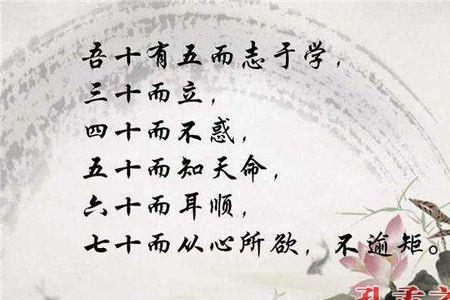 吾十有五而志于学，
三十而立，
四十而不惑，
五十而知天命，
六十而耳顺，
七十而从心所欲，不逾矩。